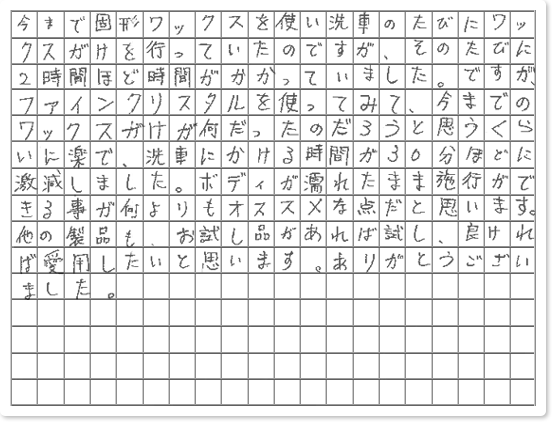 今まで固形ワックスを使い洗車のたびにワッ
クスがけを行っていたのですが、そのたびに
2時間ほど時間がかかっていました。ですが、
ファインクリスタルを使ってみて、今までの
ワックスがけが何だったのだろうと思うくら
いに楽で、洗車にかける時間が30分ほどに
激減しました。ボディが濡れたまま施行がで
きる事が何よりもオススメな点だと思います。
他の製品も、お試し品があれば試し、良けれ
ば愛用したいと思います。ありがとうござい
ました。